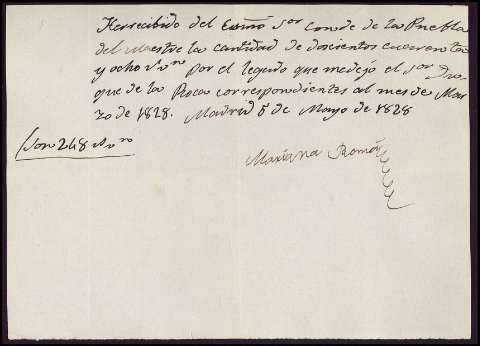 He recibido del Exmo Sor Conde de la Puebla
del Maestre la cantidad de doscientos cuarenta
y ocho rs vn por el legado que me dejó el Sor Du-
que de la Roca correspondientes al mes de Mar-
zo de 1828. Madrid 5 de Mayo de 1828
Son 248 rs vn
Mariana Román